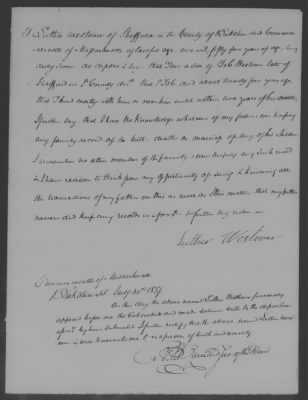 I Luther Westover of Sheffield in the County of Berkshire and Common-
wealth of Massachusetts of lawful age viz. fifty four years of age being
duly sworn do depose & say that I am a son of Job Westover late of
Sheffield in sd County decd this sd Job died about twenty four years ago
that I lived mostly with him or near him until within two years of his decease
I further say that I have no knowledge whatever of my father ever keeping
any family record of the birth death or marriage of any of his children
I remember no other member of the family ever keeping any such record
& I have reason to think from my opportunity of seeing & knowing all
the transactions of my father on this as well as other matters that my father
never did keep any records as aforesd & further say not
Luther Westover
Commonwealth of Massachusetts
Berkshire ss. 30th 1837
On this day the above named Luther Westover personally
appeared before me the subscriber and made solemn oath to the deposition
aforesd by him subscribed I further certify that the above named Luther Westover
is well known to me & is a person of truth and veracity
Jus of the Peace